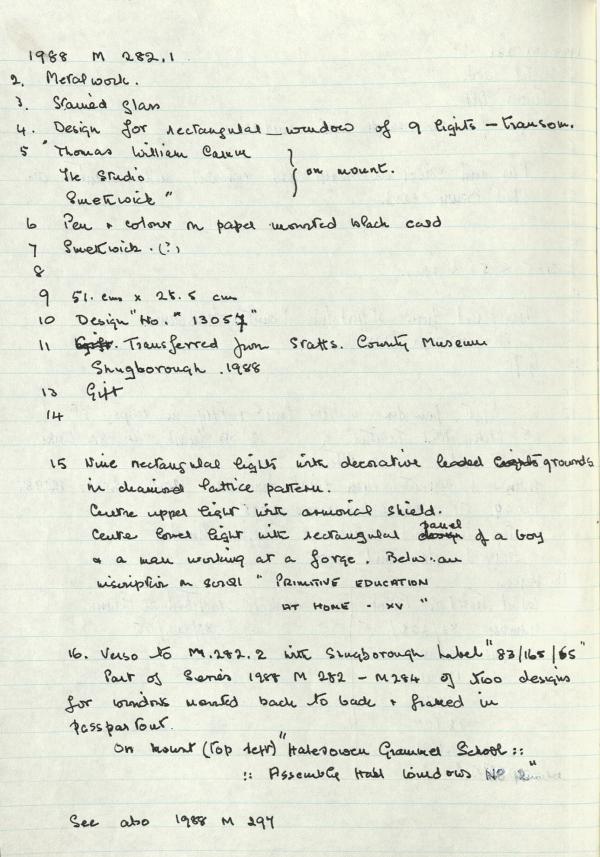 1988 M 282.1
2. Metalwork.
3. Stained glass
4. Design for rectangular window of 9 lights – transom.
5 "Thomas William Camm
The Studio } on mount.
Smethwick"
6 Pen + colour on paper mounted black card
7 Smethwick.(?)
8
9 51. cm x 25.5 cm
10 Design "No." 13057"
11 Gift. Transferred from Staffs. County Museum
Shugborough. 1988
13 Gift
14
15 Nine rectangular lights with decorative leaded lights grounds
in diamond lattice pattern.
Centre upper light with armorial shield.
Centre lower light with rectangular design panel of a boy
& a man working at a forge. Below: an
inscription on scroll "PRIMITIVE EDUCATION
AT HOME - XV"
16. Verso to M.282.2 with Shugborough label "83/165/65"
Part of Series 1988 M 282 – M284 of two designs
for windows mounted back to back & framed in
passpartout.
On mount (top left) "Halesowen Grammer School ::
:: Assembly Hall Windows No 2"
See also 1988 M 297